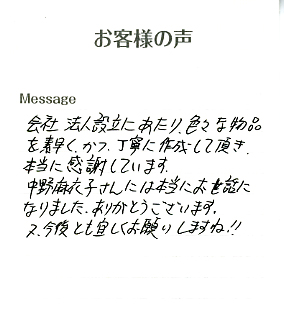 お客様の声
Message
会社 法人設立にあたり、色々な物品
を素早く、かつ、丁寧に作成して頂き、
本当に感謝しています。
中野麻衣子さんには本当にお世話に
なりました。ありがとうございます。
又、今後とも宜しくお願いしますね!!